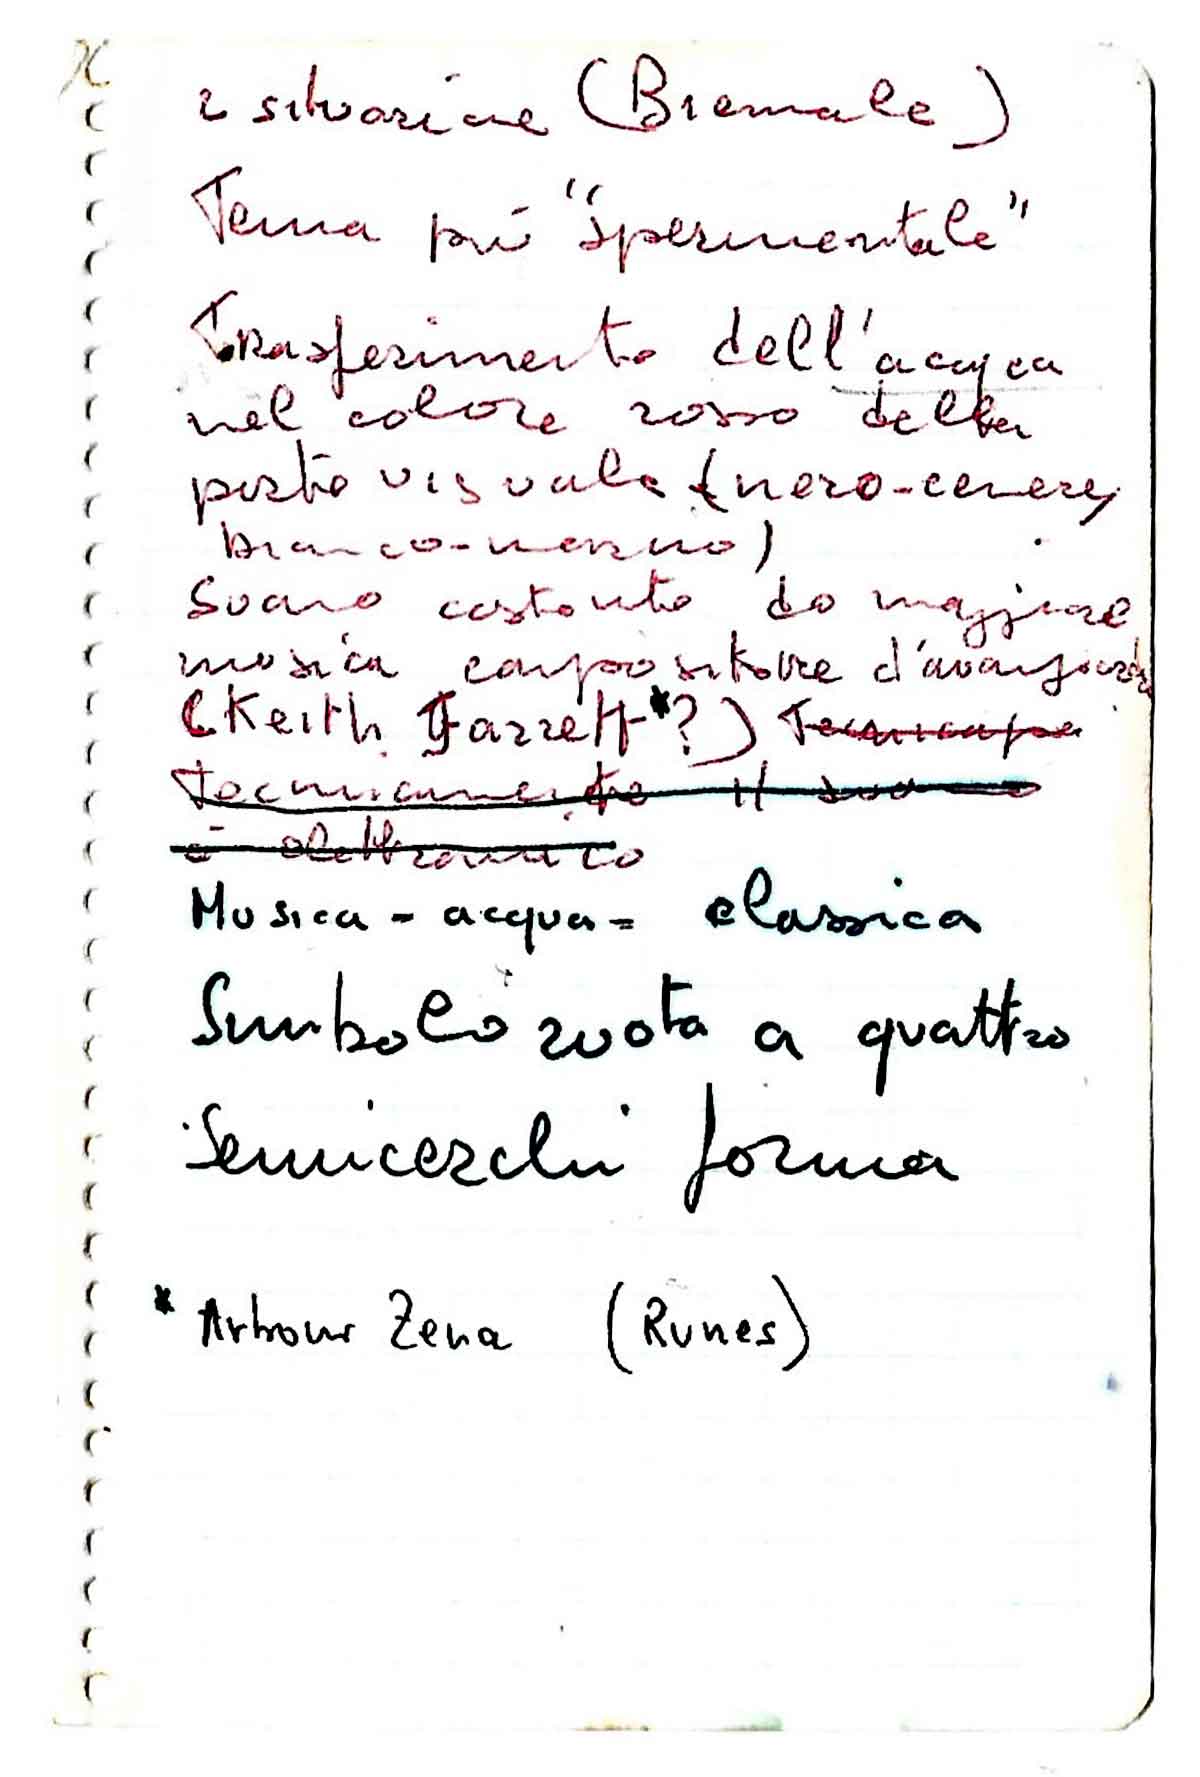 2 situazione (Biennale)
Tema più "sperimentale"
Trasferimento dell'acqua
nel colore rosso della
parte visuale (nero-cenere,
bianco-nessuno)
Suono costante do maggiore
musica compositore d'avanguardia
(Keith Jarrett*?)
Tecnicamente il suono
è elettronico
Musica - acqua = classica
Simbolo ruota a quattro
Semicerchi forma
* Arbour Zena (Runes)